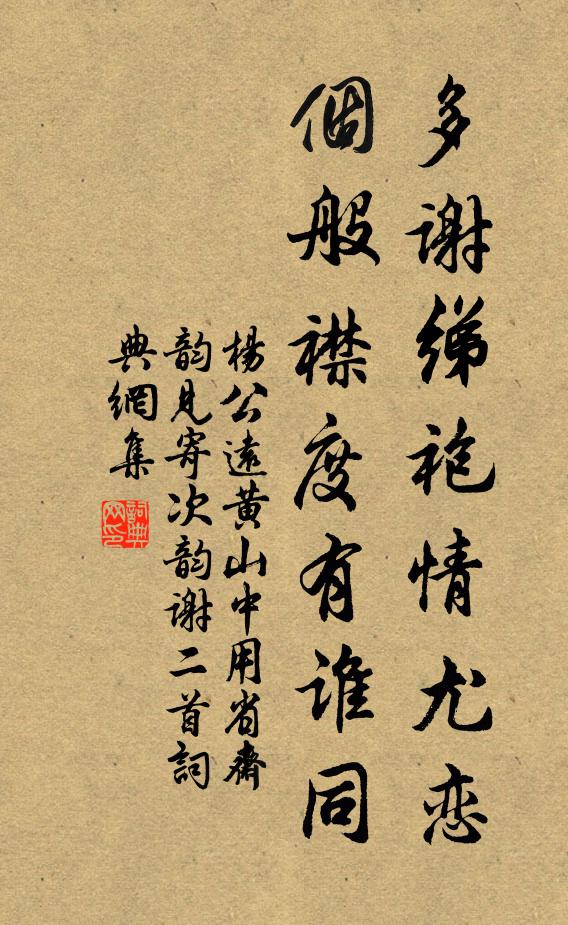 多謝綈袍情尤恋
個般襟度有誰同
楊公遠黄山中用省齋
韵見寄次韵謝二首詞
典網集
詞典网印